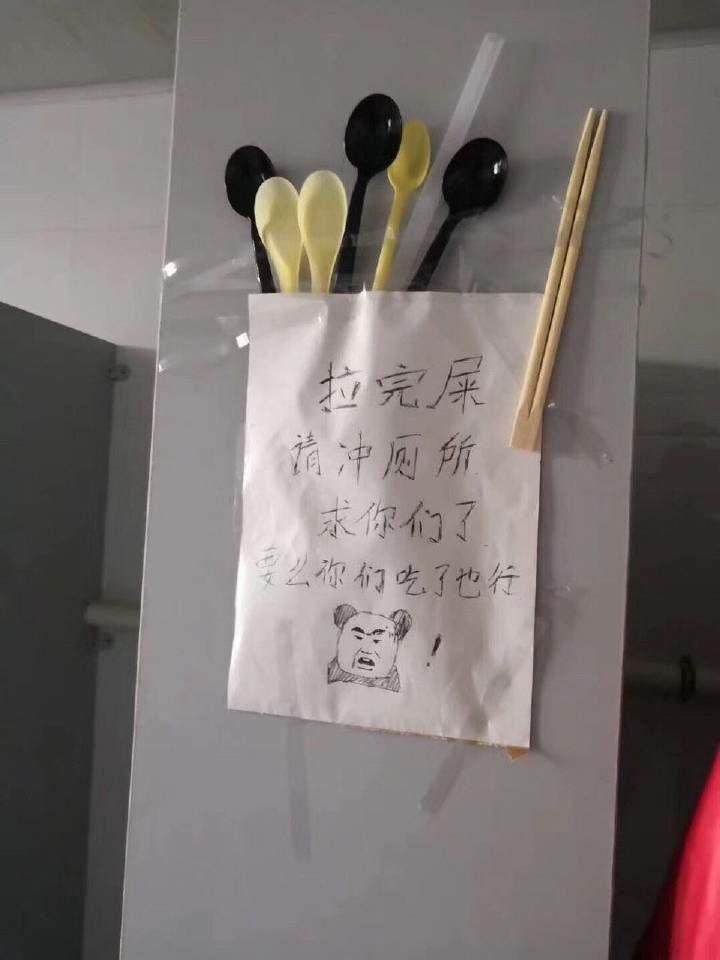 拉完屎
请冲厕所
求你们了
要么你们吃了也行
!